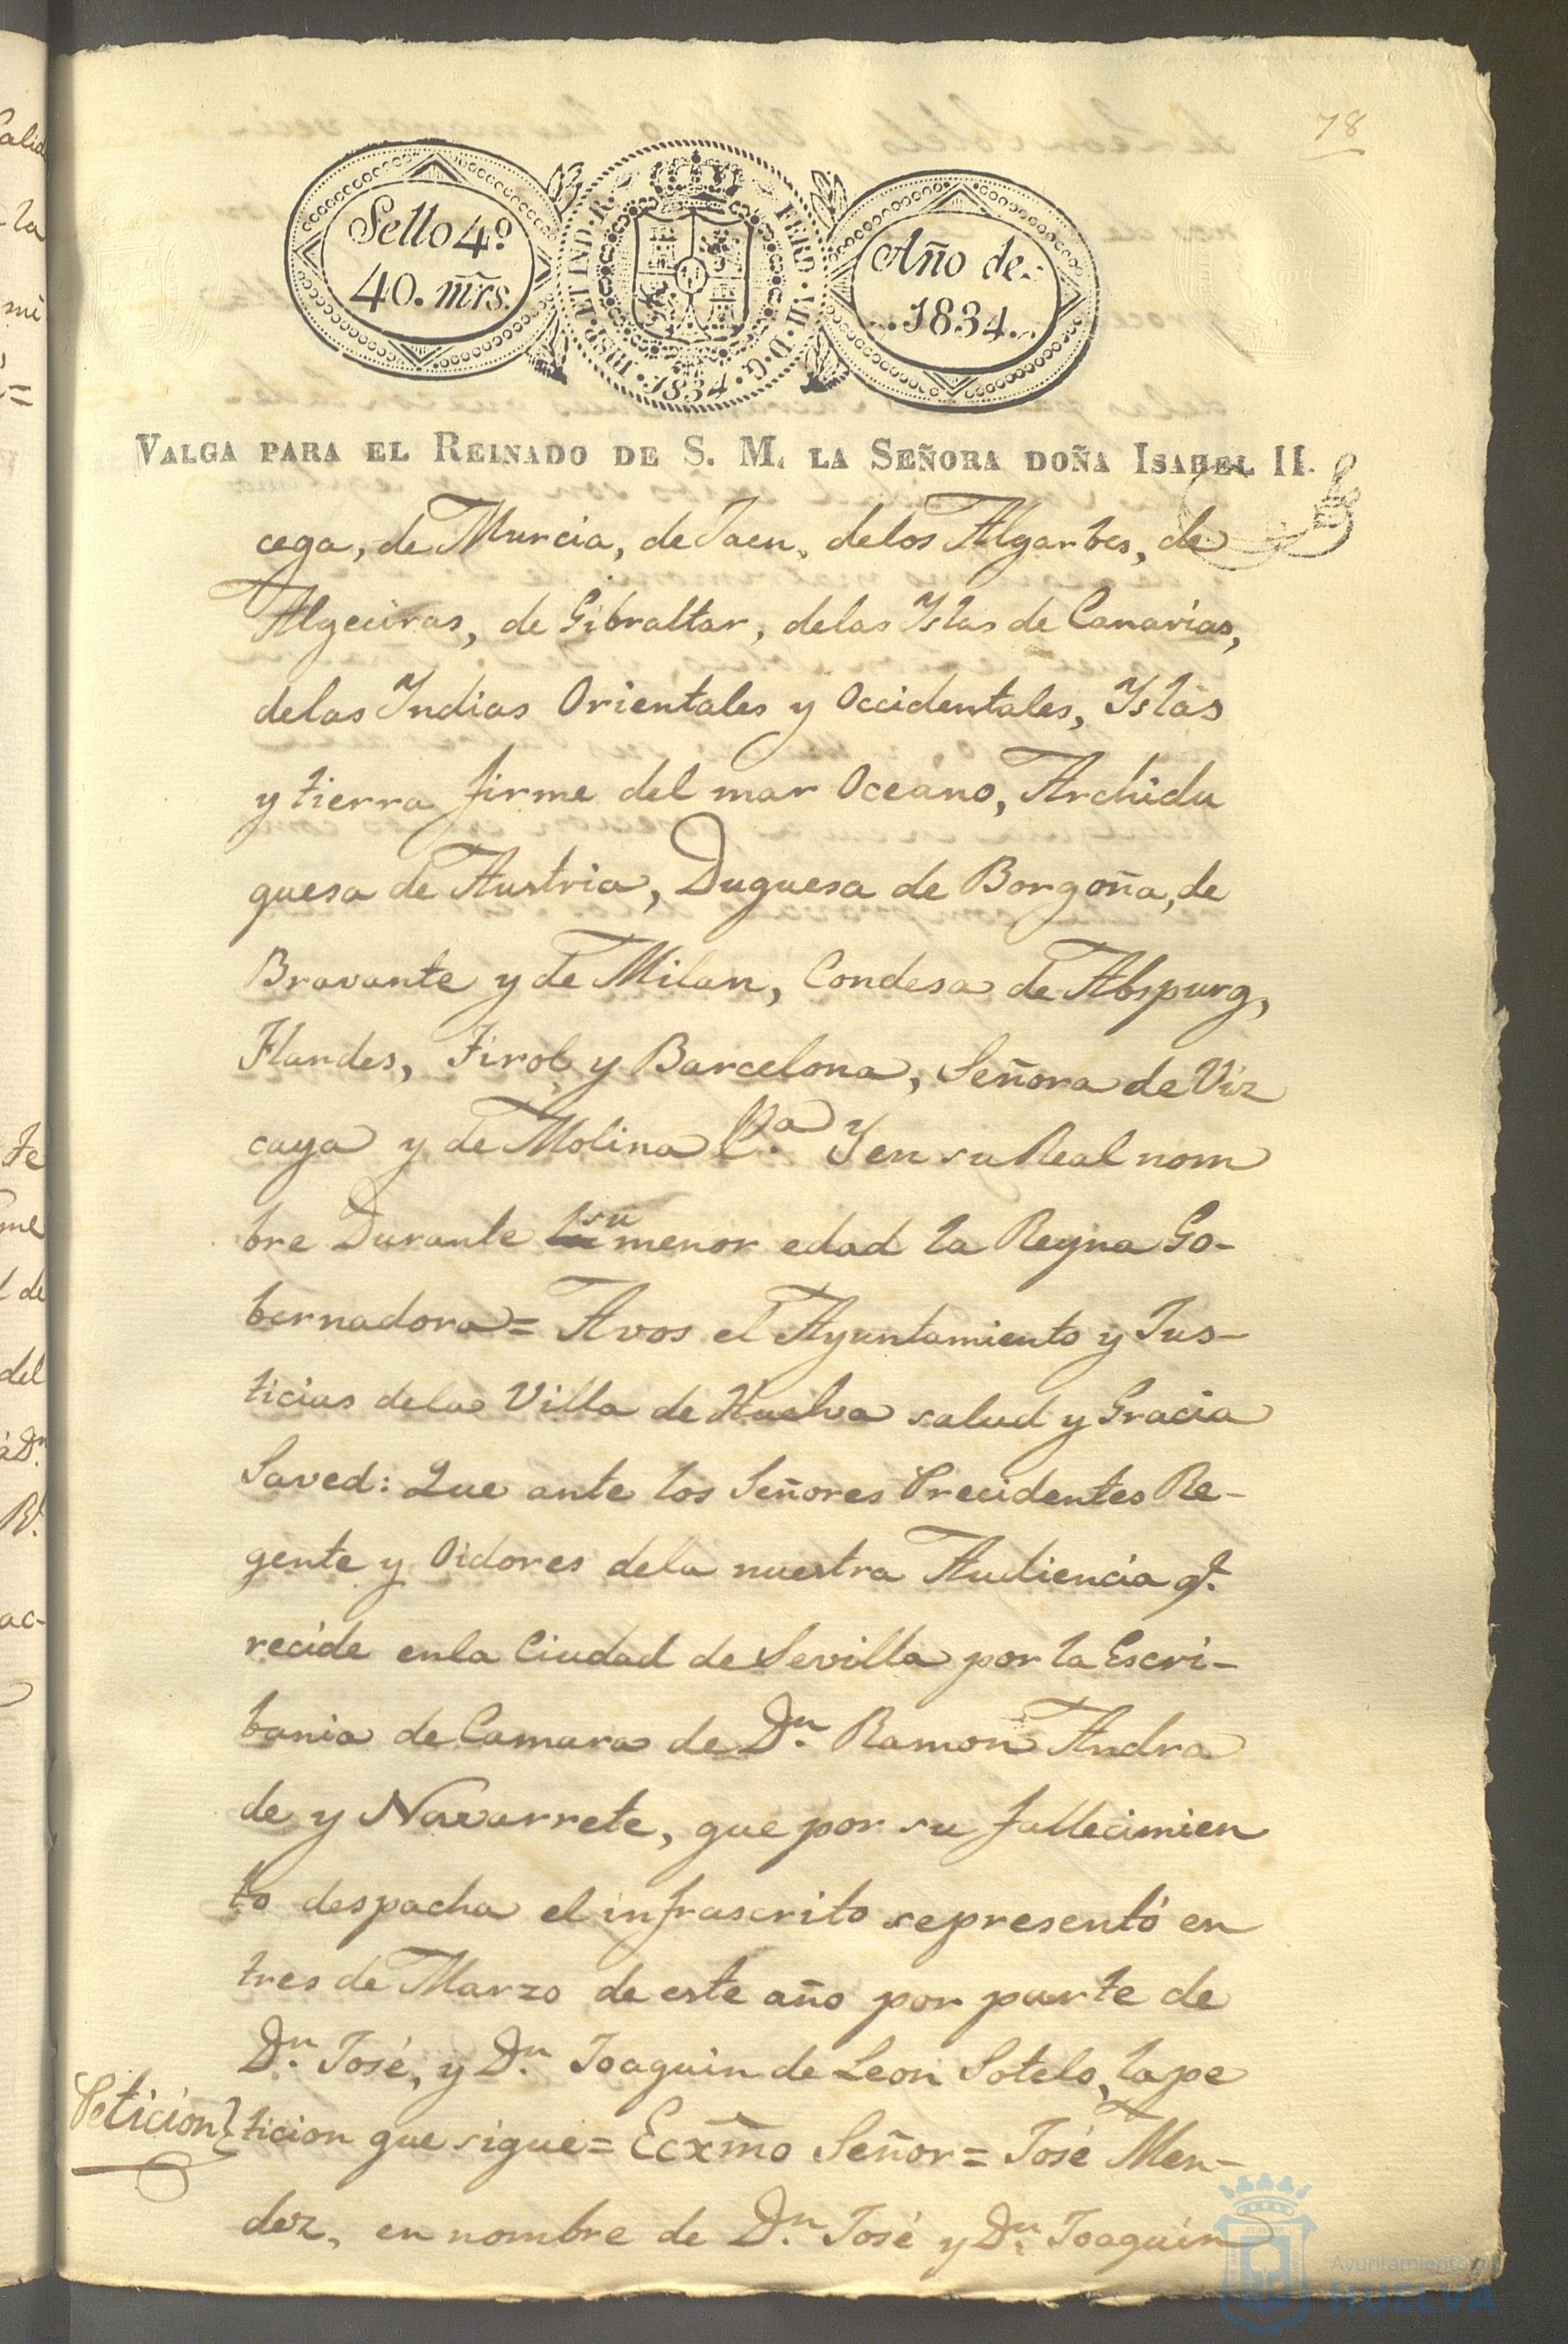 78
Sello 4º
40. mrs.
HISP. ET IND. R.
FERD. VII. D. G.
1834.
Año de
1834.
VALGA PARA EL REINADO DE S. M. LA SEÑORA DOÑA ISABEL II.
cega, de Murcia, de Jaen, delos Algarbes, de
Algeciras, de Gibraltar, delas Yslas de Canarias,
delas Yndias Orientales y Occidentales, Yslas
y tierra firme del mar Oceano, Archidu
quesa de Austria, Duquesa de Borgoña, de
Bravante y de Milan, Condesa de Abspurg,
Flandes, Tirol y Barcelona, Señora de Viz
caya y de Molina &.ª Y en su Real nom
bre Durante su menor edad la Reyna Go-
bernadora = Avos el Ayuntamiento y Jus-
ticias dela Villa de Huelva salud y Gracia
Saved: Que ante los Señores Precidentes Re-
gente y Oidores dela nuestra Audiencia q.e
recide enla Ciudad de Sevilla por la Escri-
bania de Camara de D.n Ramon Andra
de y Navarrete, que por su fallecimien
to despacha el infrascrito sepresentó en
tres de Marzo de este año por parte de
D.n José, y D.n Joaquin de Leon Sotelo, lape
Peticion} ticion que sigue = Ecxmo Señor = José Men-
dez, en nombre de D.n José y D.n Joaquin
Ayuntamiento de
HUELVA
alid
la
mi
=
te
me
l de
del
à D.n
R.l
ac-